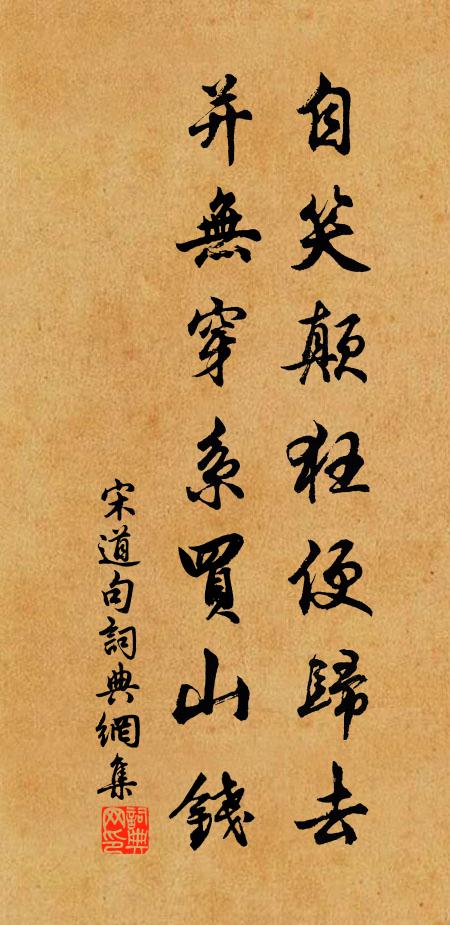 自笑颠狂便歸去
并無穿系買山錢
宋道句詞典網集
詞典網印